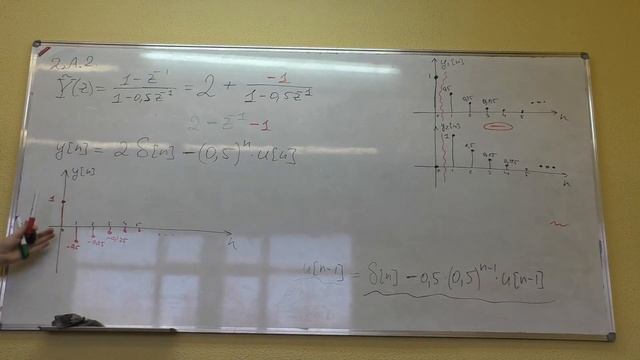 2.A.2.
Y(z) = (1-z⁻¹)/(1-0,5z⁻¹) = 2 + (-1)/(1-0,5z⁻¹)
2 - z⁻¹ - 1
y[n] = 2δ[n] - (0,5)ⁿ·u[n]
y[n]
1
1 2 3 4 5
-0,5 -0,25 -0,125
n
y₁[n]
1
0,5 0,25 0,125
n
y₂[n]
1
0,5 0,25 0,125
n
u[n-1] = δ[n] - 0,5·(0,5)ⁿ⁻¹·u[n-1]